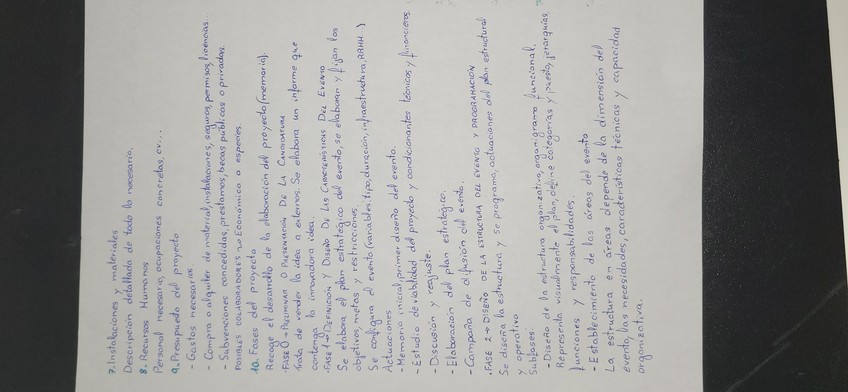 7. Instalaciones y materiales
Descripción detallada de todo lo necesario.
8. Recursos Humanos
Personal necesario, ocupaciones concretas, cv...
9. Presupuesto del proyecto
- Gastos necesarios
- Compra o alquiler de material, instalaciones, seguros, permisos, licencias
- Subvenciones concedidas, prestamos, becas públicas o privadas.
POSIBLES COLABORADORES → Económico o especies.
10. Fases del proyecto
Recoge el desarrollo de la elaboración del proyecto (memoria).
· FASE 0 → PRELIMINAR O PRESENTACIÓN DE LA CANDIDATURA
Trata de vender la idea a externos. Se elabora un informe que
contenga la innovadora idea.
· FASE 1 → DEFINICIÓN Y DISEÑO DE LAS CARACTERÍSTICAS DEL EVENTO
Se elabora el plan estratégico del evento, se elaboran y fijan los
objetivos, metas y restricciones.
Se configura el evento (variables, tipo, duración, infraestructura, RRHH...)
Actuaciones
- Memoria inicial, primer diseño del evento.
- Estudio de viabilidad del proyecto y condicionantes técnicos y financieros
- Discusión y reajuste.
- Elaboración del plan estratégico.
- Campaña de difusión del evento.
· FASE 2 → DISEÑO DE LA ESTRUCTURA DEL EVENTO Y PROGRAMACIÓN
Se diseña la estructura y se programa, actuaciones del plan estructural
y operativo
Subfases:
- Diseño de la estructura organizativa, organigrama funcional.
Representa visualmente el plan, define categorías y puesto, jerarquías,
funciones y responsabilidades.
- Establecimiento de las áreas del evento
La estructura en áreas depende de la dimensión del
evento, las necesidades, características técnicas y capacidad
organizativa.